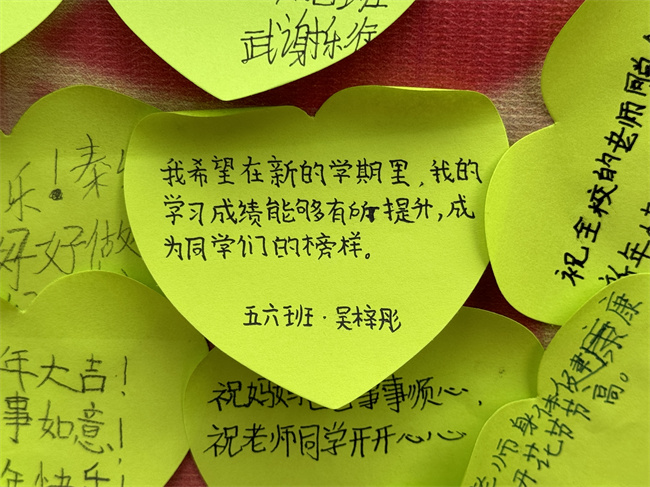 武谢乐徐
我希望在新的学期里，我的
学习成绩能够有所提升，成
为同学们的榜样。
五六班·吴梓彤
乐！秦
好好做
年大吉！
事如意！
年快乐！
祝妈妈 事事顺心，
祝老师同学开开心心
祝全校的老师同学
师身体健康
开花节节高。